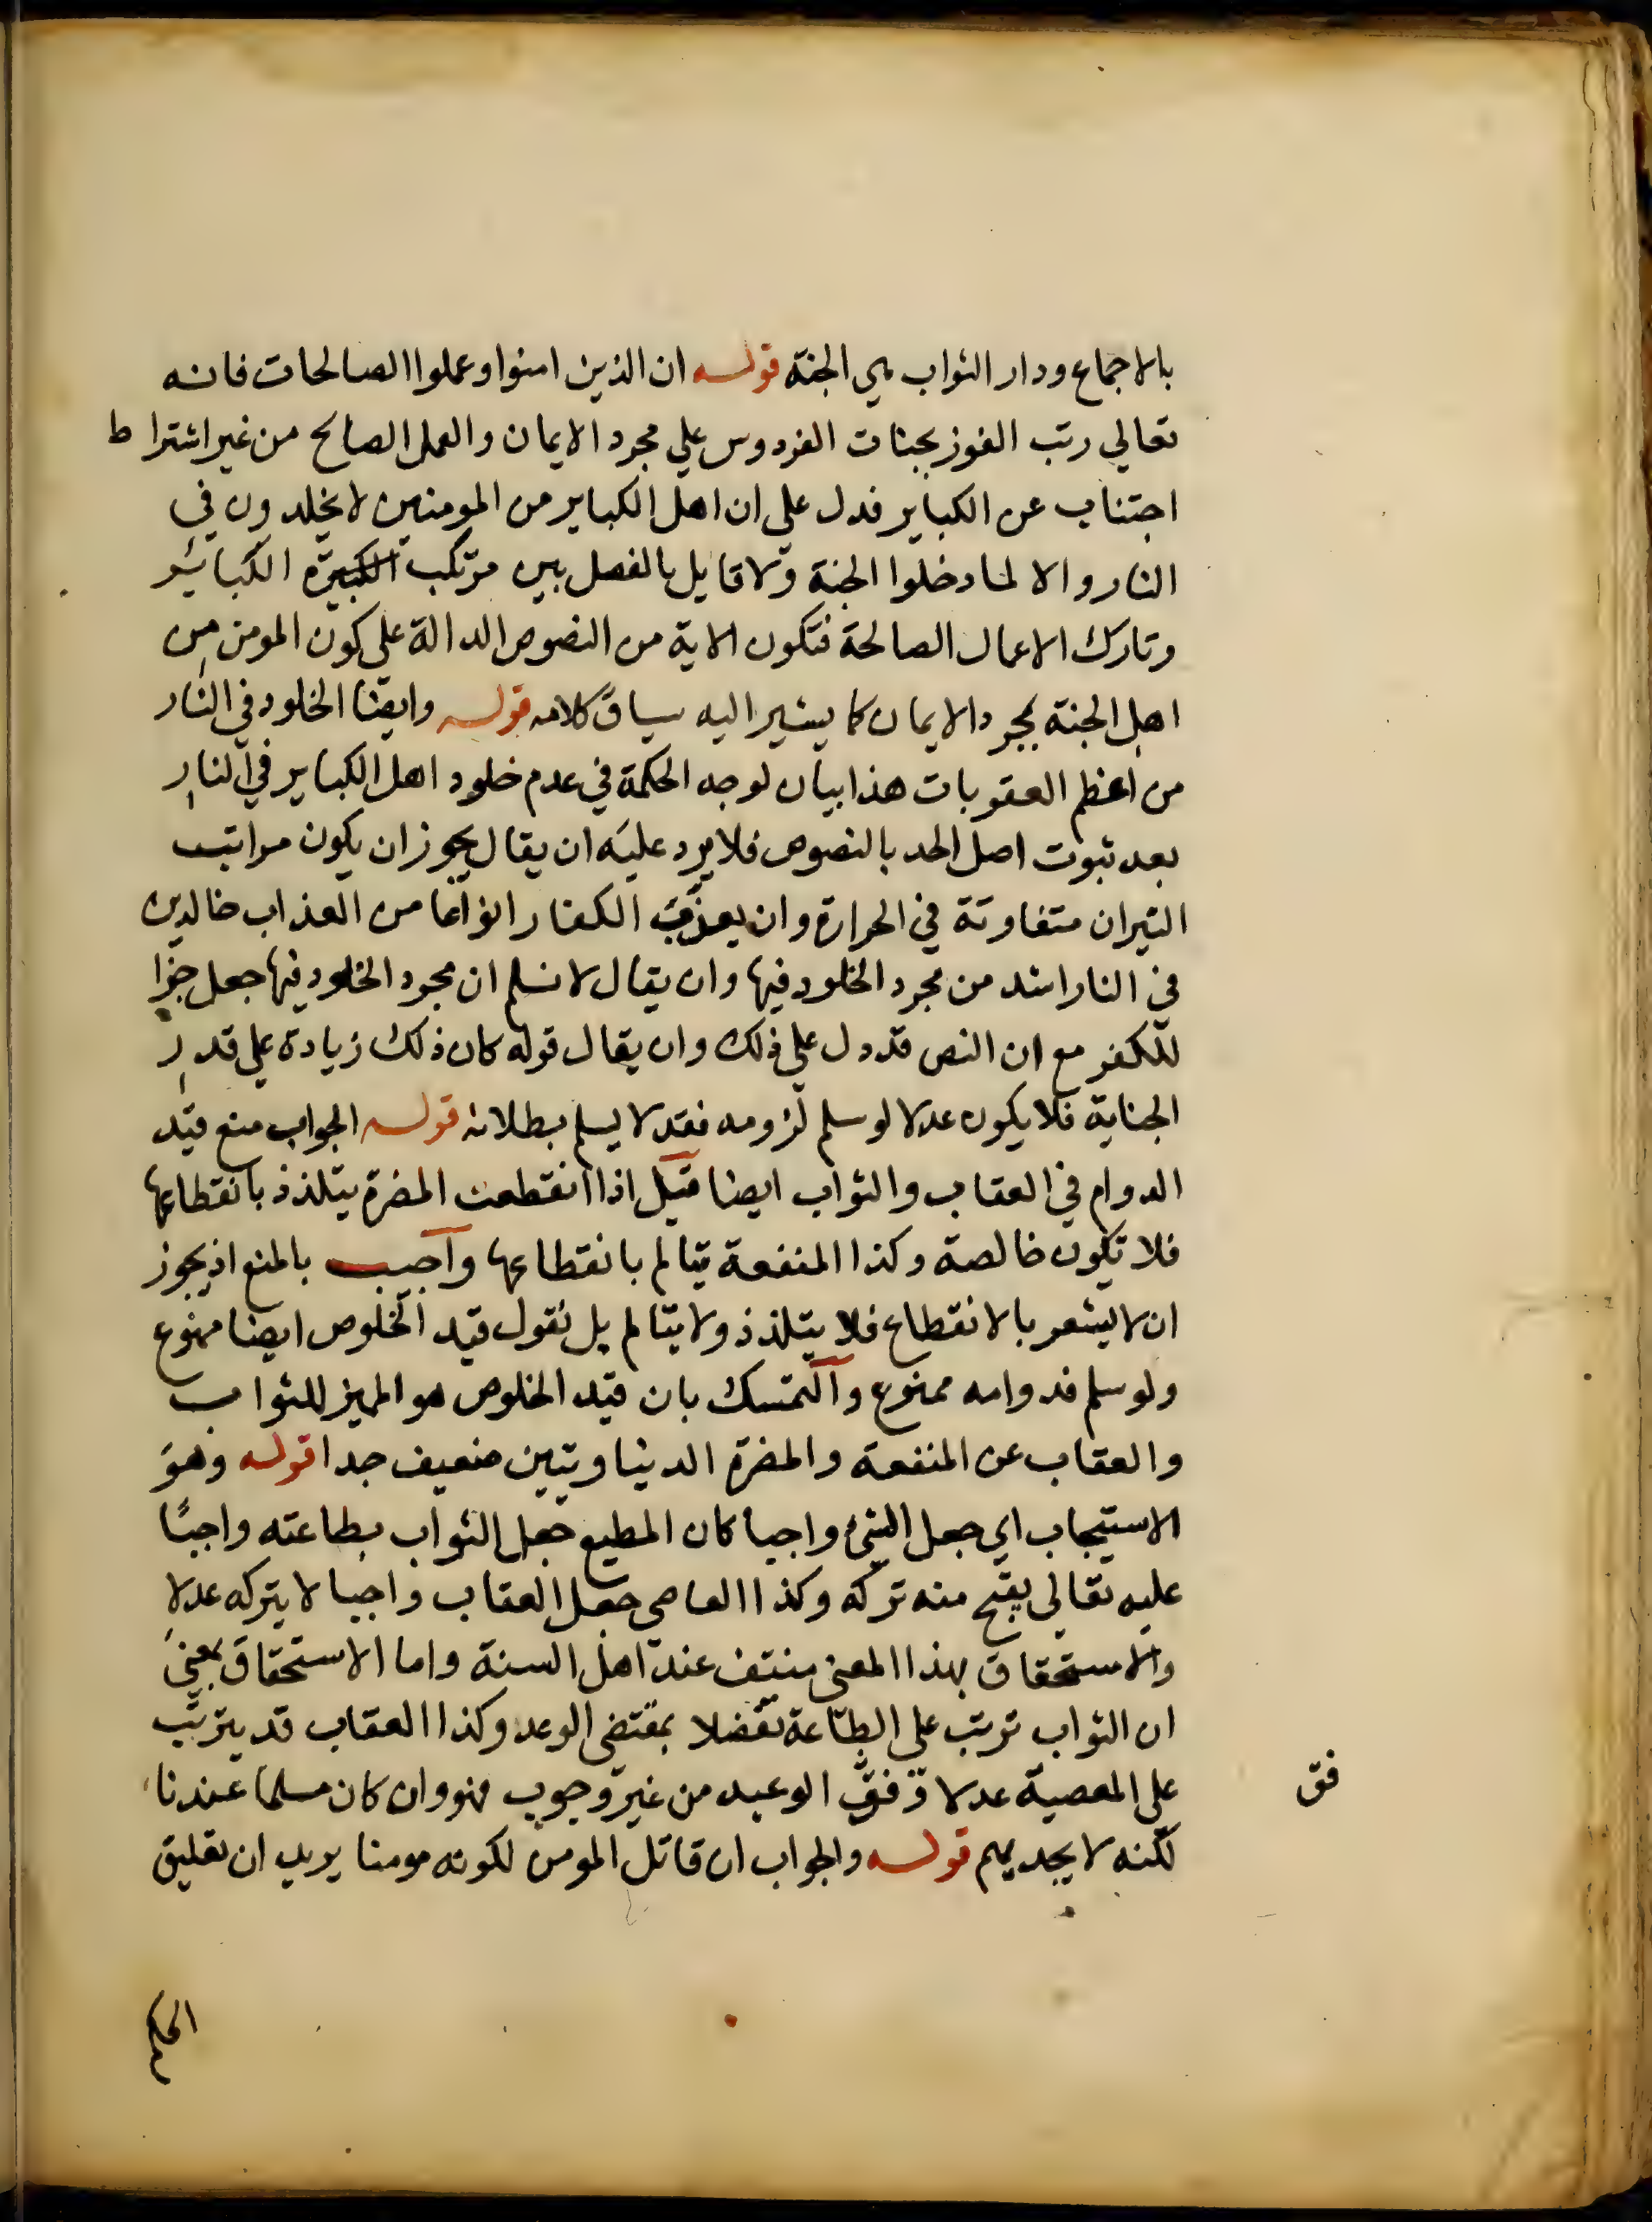 بالاجماع ودار الثواب هي الجنة قوله ان الذين امنوا وعملوا الصالحات فانه
تعالي رتب الفوز بجنات الفردوس علي مجرد الايمان والعمل الصالح من غير اشتراط
اجتناب عن الكباير فدل علي ان اهل الكباير من المومنين لا يخلدون في
النار والا لما دخلوا الجنة ولا قايل بالفصل بين مرتكب الكبيرة الكبائر
وتارك الاعمال الصالحة فتكون الاية من النصوص الدالة علي كون المومن من
اهل الجنة بمجرد الايمان كما يشير اليه سياق كلامه قوله وايضا الخلود في النار
من اعظم العقوبات هذا بيان لوجه الحكمة في عدم خلود اهل الكباير في النار
بعد ثبوت اصل الحد بالنصوص فلا يرد عليه ان يقال يجوز ان يكون مراتب
النيران متفاوتة في الحرارة وان يعذب الكفار انواعا من العذاب خالدين
في النار اشد من مجرد الخلود فيها وان يقال لا نسلم ان مجرد الخلود فيها جعل جزا
للكفر مع ان النص قد دل علي ذلك وان يقال قوله كان ذلك زيادة علي قدر
الجناية فلا يكون عدلا لو سلم لزومه فقد لا يسلم بطلانه قوله الجواب منع قيد
الدوام في العقاب والثواب ايضا قيل اذا انقطعت المضرة يتلذذ بانقطاعها
فلا تكون خالصة وكذا المنفعة يتالم بانقطاعها واجيب بالمنع اذ يجوز
ان لا يشعر بالانقطاع فلا يتلذذ ولا يتالم بل نقول قيد الخلوص ايضا ممنوع
ولو سلم فدوامه ممنوع والتمسك بان قيد الخلوص هو المميز للثواب
والعقاب عن المنفعة والمضرة الدنياويتين ضعيف جدا قوله وهو
الاستيجاب اي جعل الشيء واجبا كان المطيع جعل الثواب بطاعته واجبًا
عليه تعالي يقبح منه تركه وكذا العاصي جعل العقاب واجبا لا يتركه عدلا
والاستحقاق بهذا المعني منتف عند اهل السنة واما الاستحقاق بمعني
ان الثواب ترتب علي الطاعة تفضلا بمقتضي الوعد وكذا العقاب قد يترتب
علي المعصية عدلا وفق الوعيد من غير وجوب فهو وان كان مسلما عندنا
لكنه لا يجديهم قوله والجواب ان قاتل المومن لكونه مومنا يريد ان تعليق
فق
الحكم